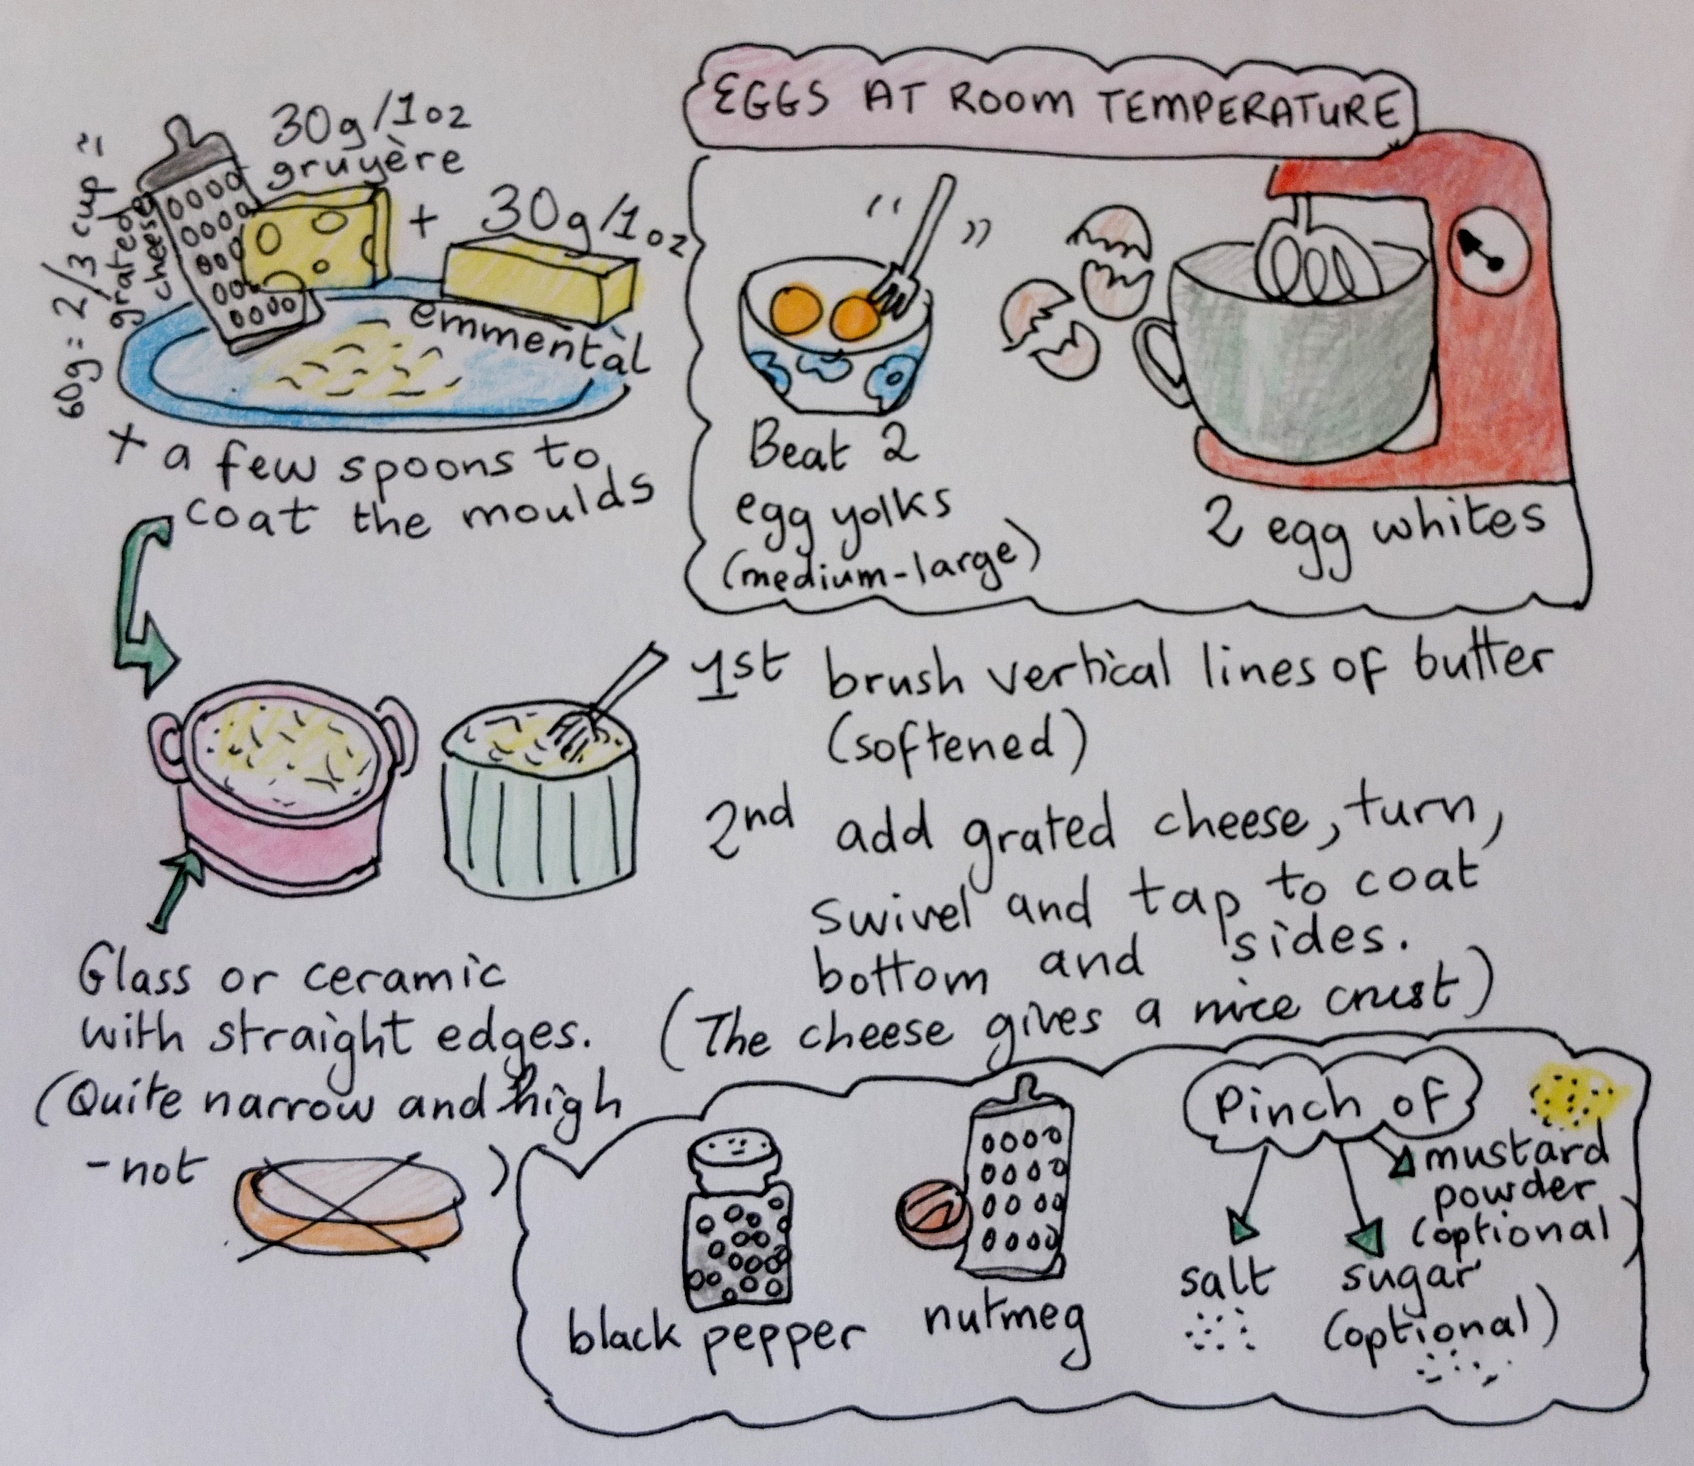 30g/1oz
gruyère
+ 30g/1oz
emmentàl
60g = 2/3 cup =
grated
cheese
+ a few spoons to
coat the moulds
EGGS AT ROOM TEMPERATURE
Beat 2
egg yolks
(medium-large)
2 egg whites
1st brush vertical lines of butter
(softened)
2nd add grated cheese, turn,
swivel and tap to coat
bottom and sides.
(The cheese gives a nice crust)
Glass or ceramic
with straight edges.
(Quite narrow and high
-not )
black pepper
nutmeg
Pinch of
salt
sugar
(optional)
mustard
powder
(optional)